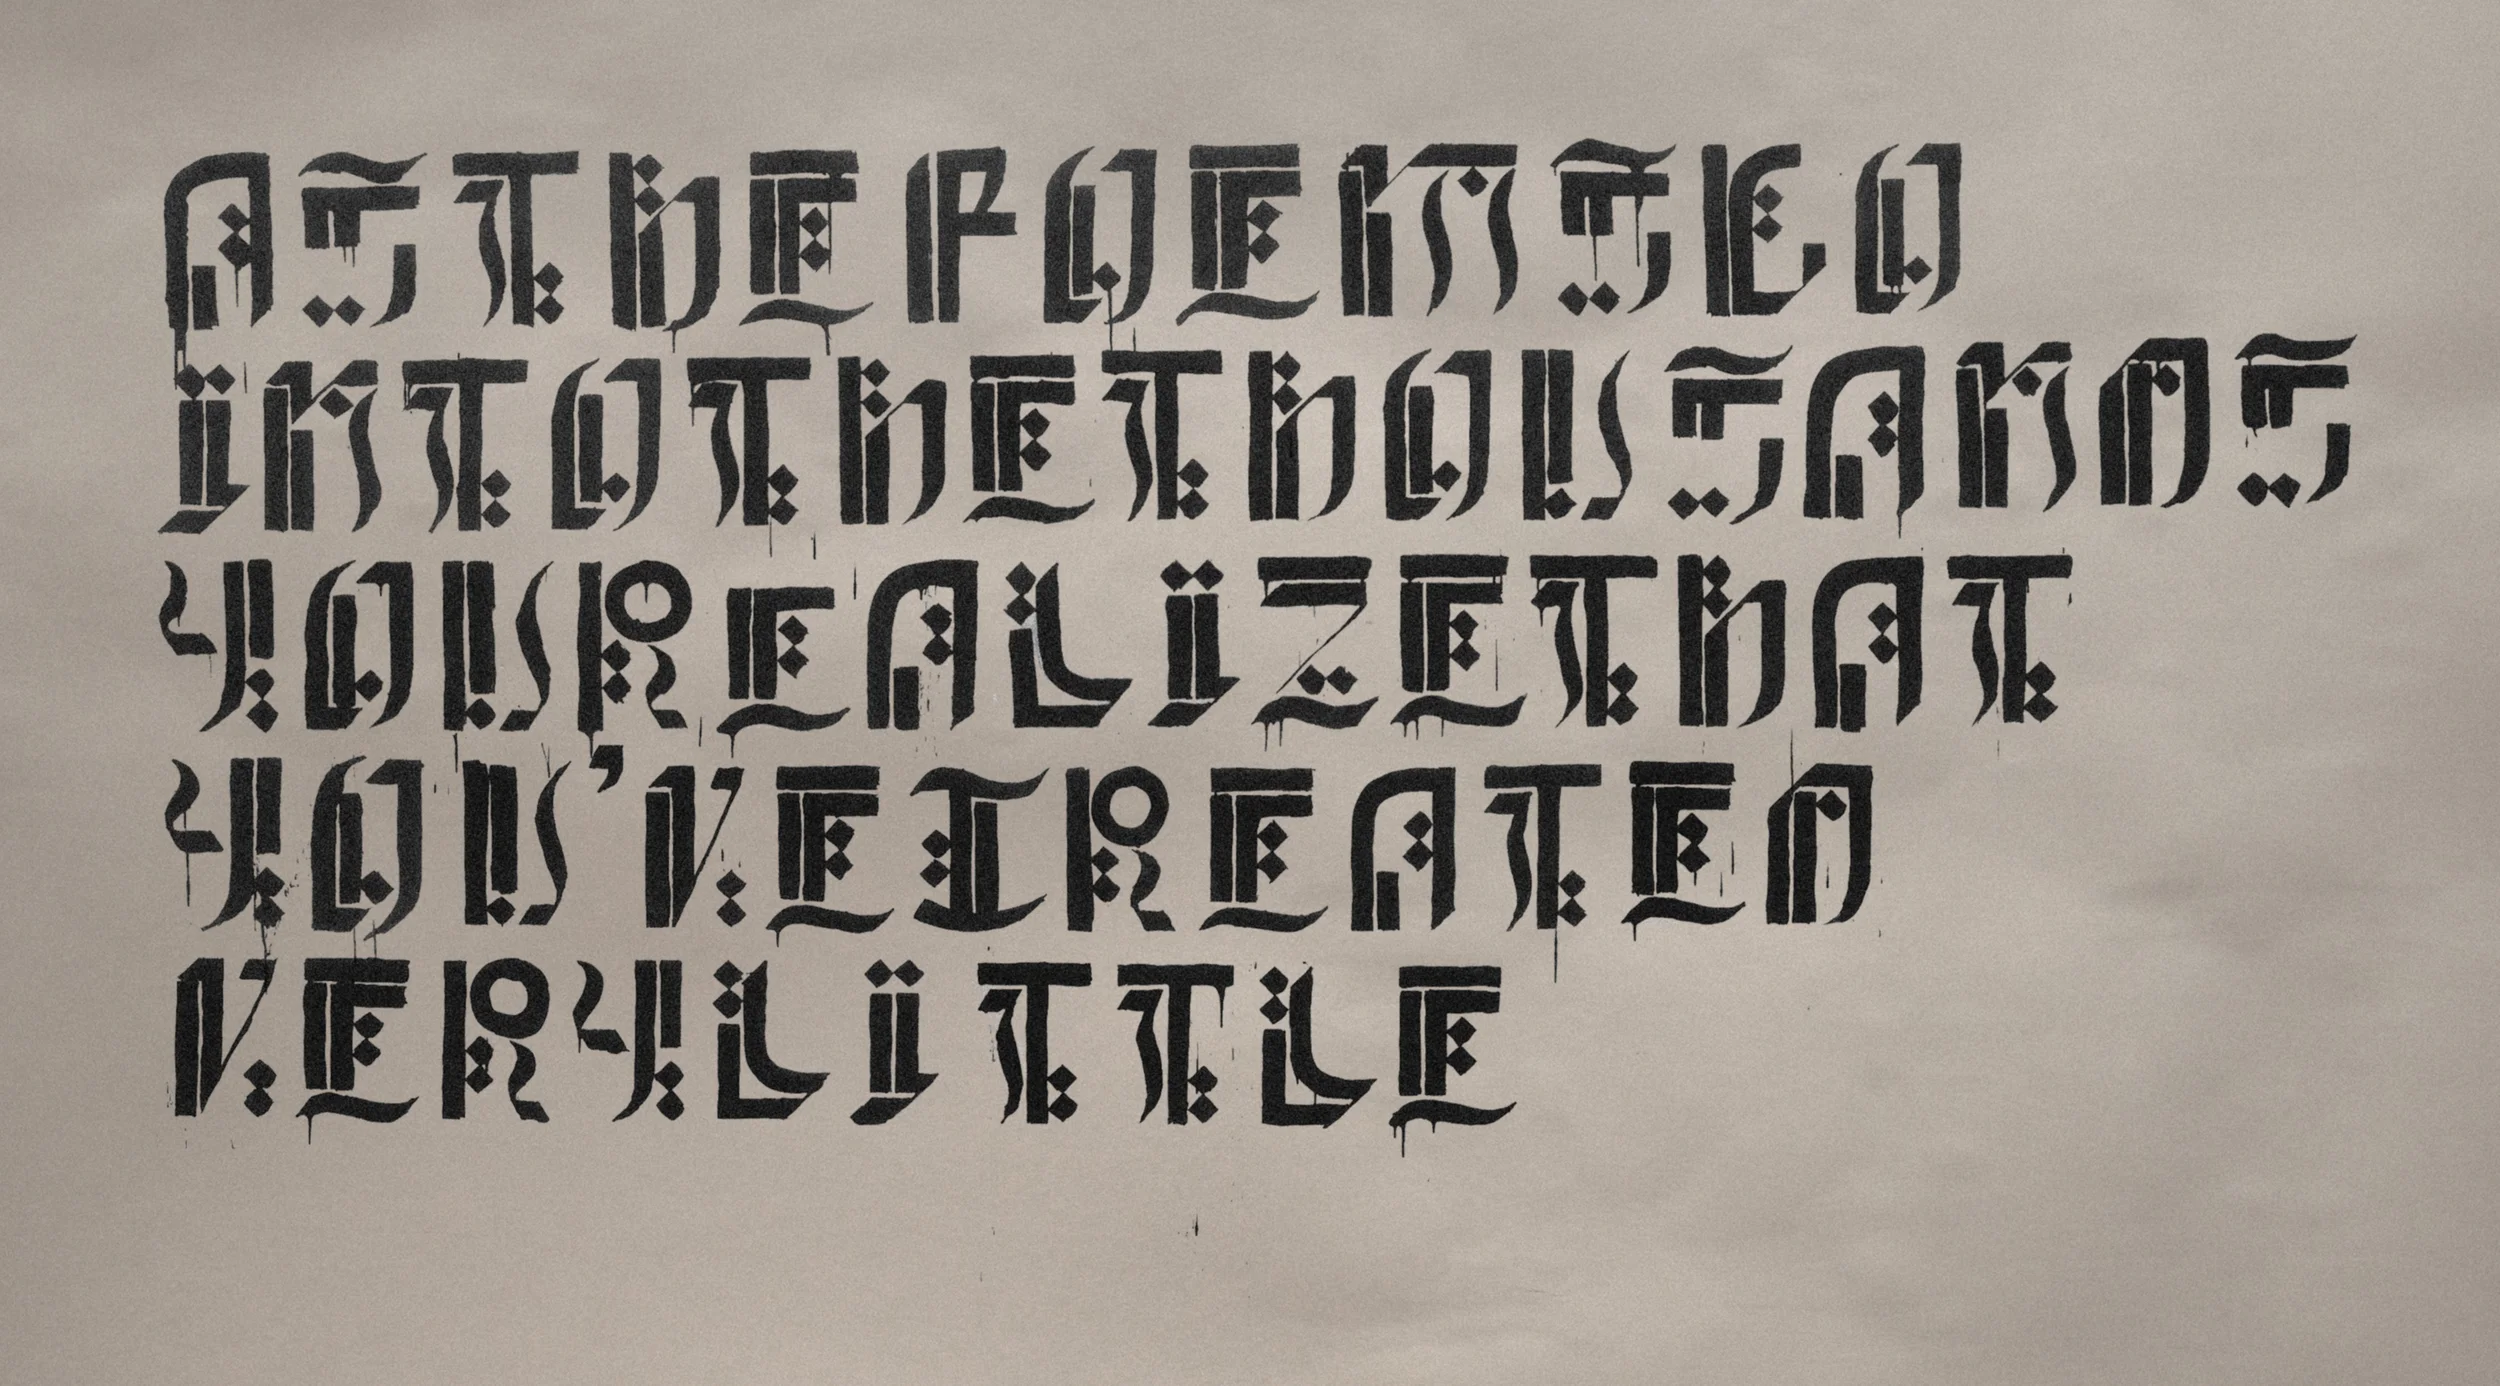 AS THE POEMS GO
INTO THE THOUSANDS
YOU REALIZE THAT
YOU'VE CREATED
VERY LITTLE